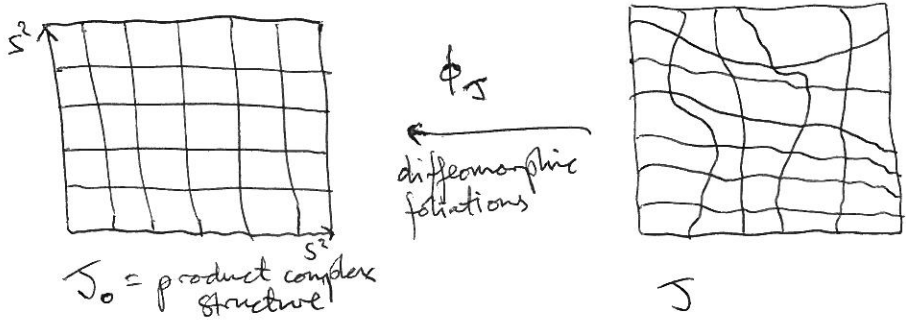 S²
S²
J₀ = product complex
structure
ϕ_J
diffeomorphic
foliations
J